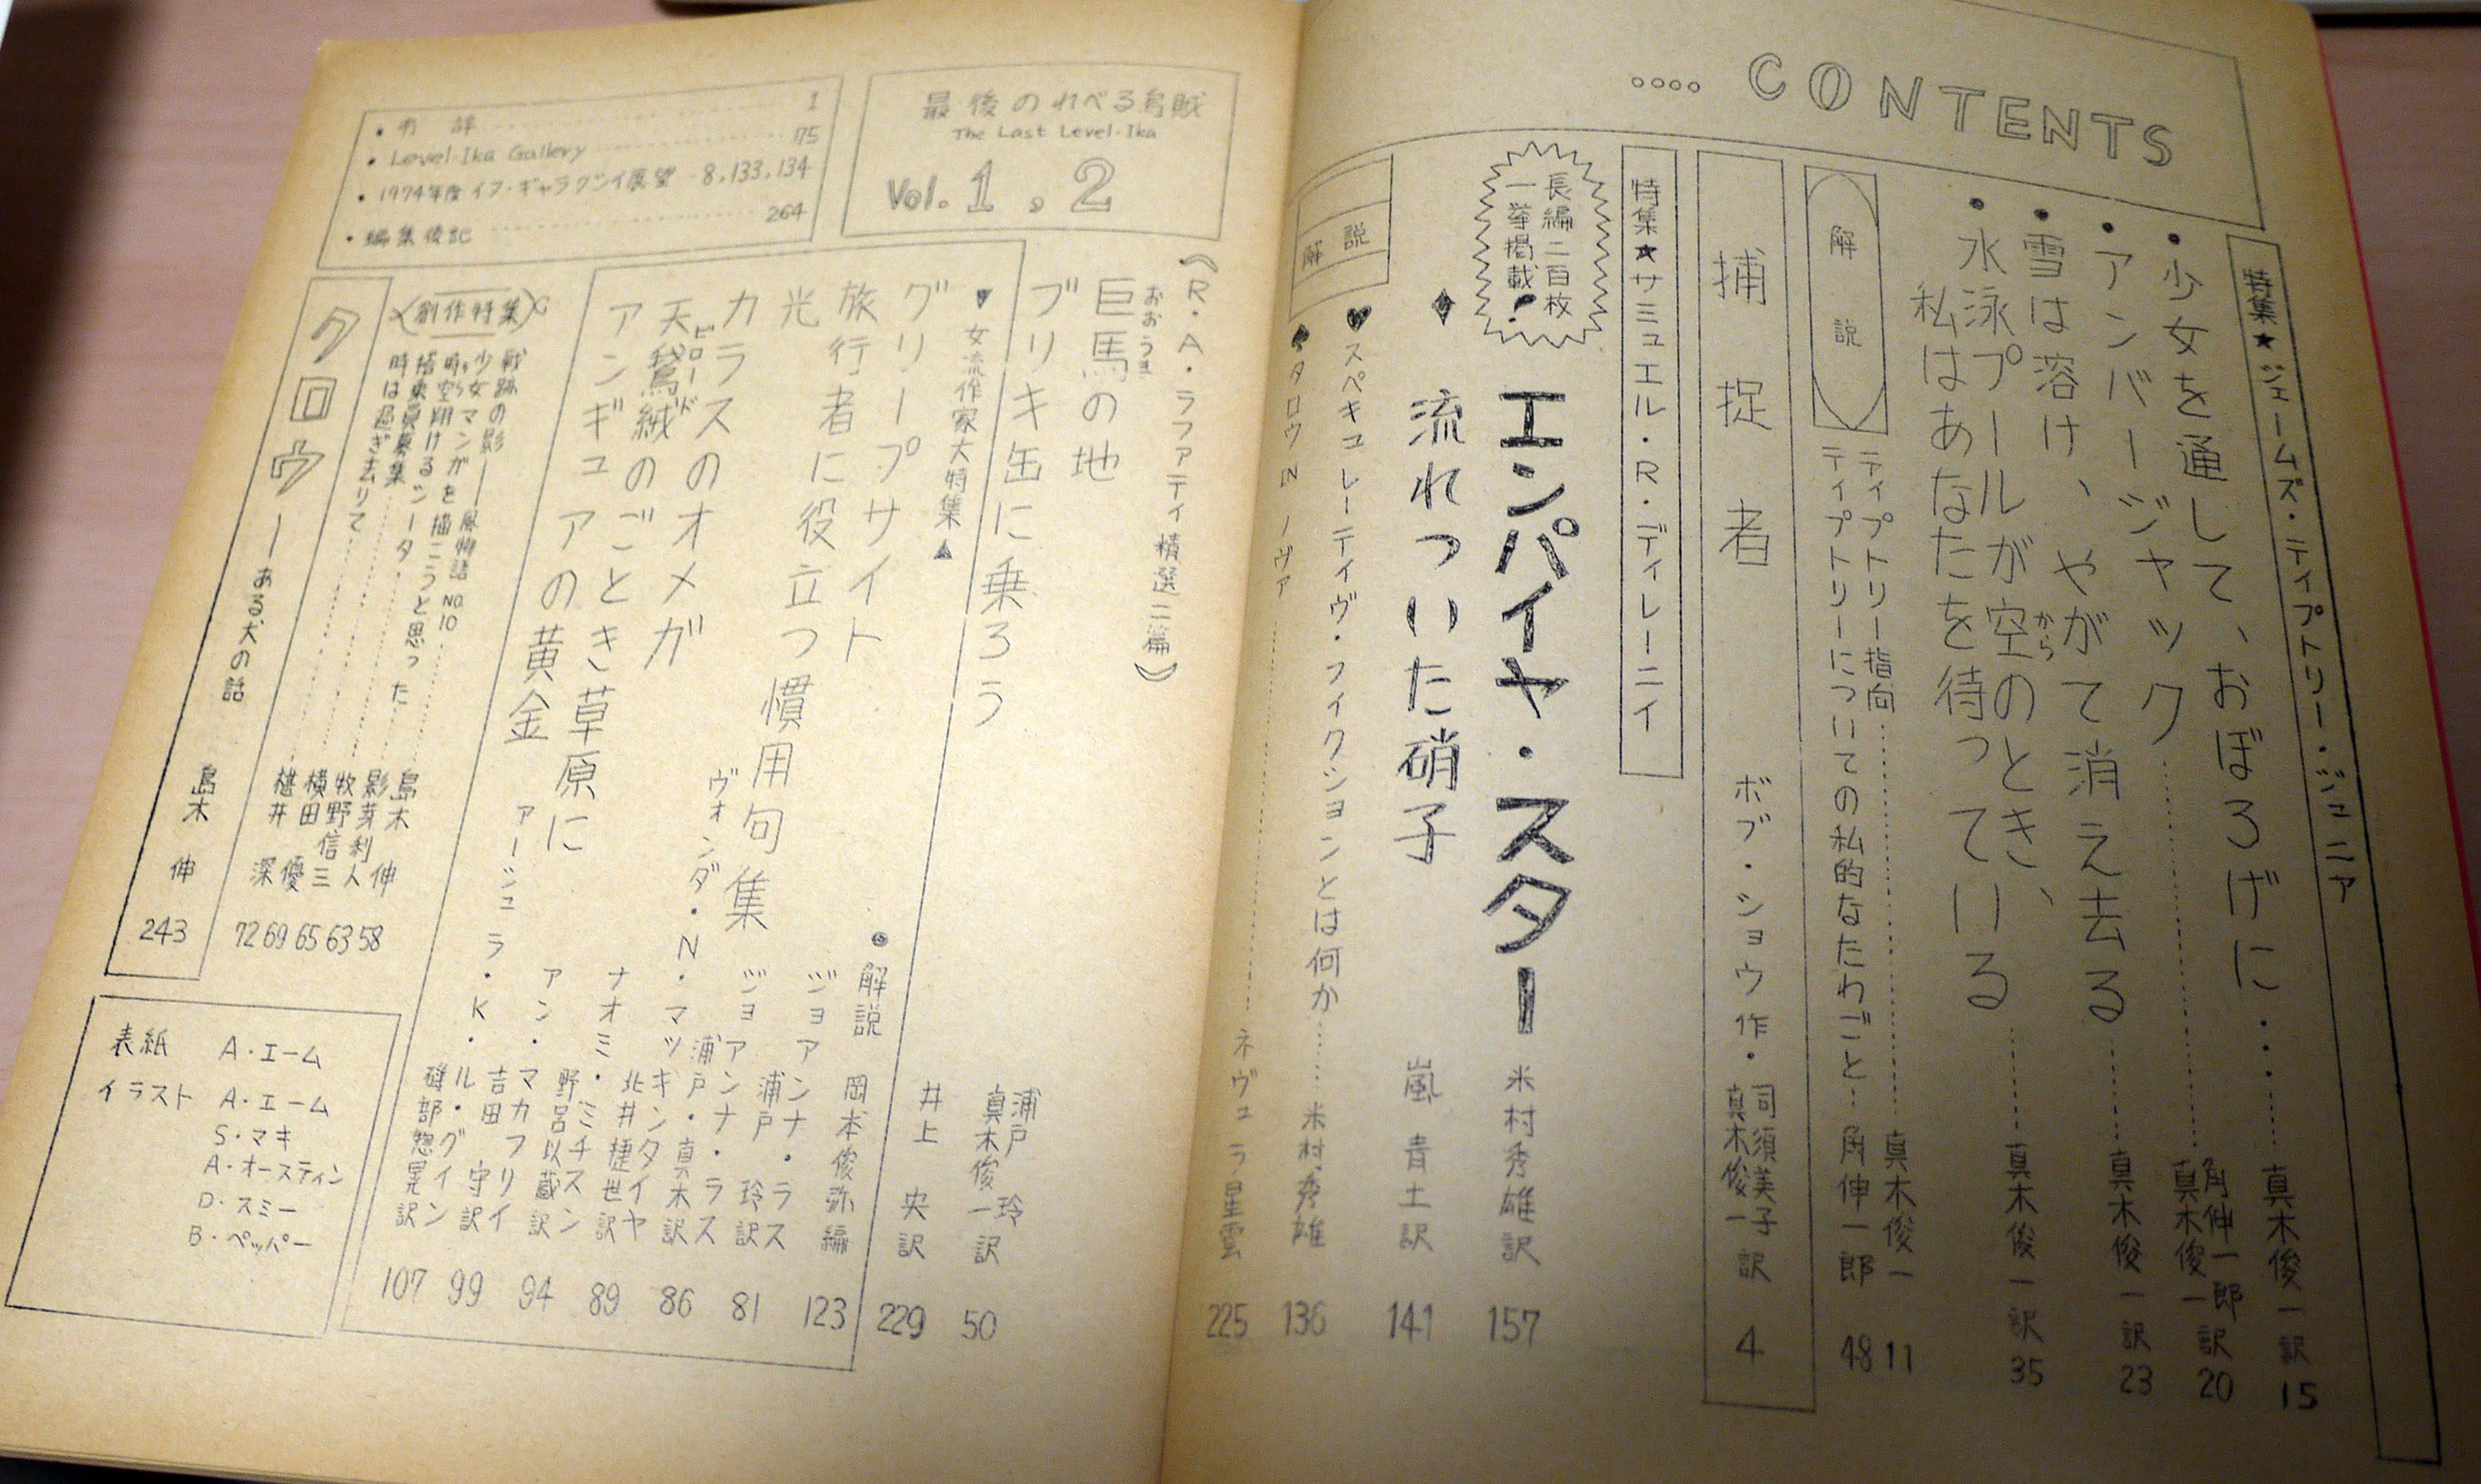 CONTENTS
特集★ジェームズ・ティプトリー・ジュニア
・少女を通して、おぼろげに・・・ 真木俊一訳 15
・アンバージャック 角伸一郎 真木俊一訳 20
・雪は溶け、やがて消え去る 真木俊一訳 23
・水泳プールが空のとき、
から
私はあなたを待っている 真木俊一訳 35
解説
ティプトリー指向 真木俊一 11
ティプトリーについての私的なたわごと 角伸一郎 48
捕捉者 ボブ・ショウ作・司須美子 真木俊一訳 4
特集★サミュエル・R・ディレーニイ
長編二百枚
一挙掲載!
エンパイヤ・スター 米村秀雄訳 157
♦ 流れついた硝子 嵐 青土訳 141
解説
♥スペキュレーティヴ・フィクションとは何か 米村秀雄 136
♠タロウ IN ノヴァ ネヴュラ星雲 225
最後のれべる烏賊
The Last Level-Ika
Vol. 1, 2
・ Level-Ika Gallery 75
・1974年度イフ・ギャラクシイ展望 8,133,134
・編集後記 264
《R・A・ラファティ精選二篇》
おおうま
巨馬の地 浦戸玲 真木俊一訳 50
ブリキ缶に乗ろう 井上 央訳 229
▼女流作家大特集▲
●解説 岡本俊弥編 123
グリープサイト ジョアンナ・ラス 浦戸 玲訳 81
旅行者に役立つ慣用句集 ジョアンナ・ラス 浦戸・真木訳 86
光
カラスのオメガ ヴォンダ・N・マッキンタイヤ 北井捷世訳 89
ビロード
天鵞絨のごとき草原に ナオミ・ミチスン 野呂以蔵訳 94
アンギュアの黄金 アン・マカフリイ 吉田 守訳 99
アージュラ・K・ル・グイン 磯部惣晃訳 107
創作特集
戦跡の影―風物語 NO.10 島木 伸 58
少女マンガを描こうと思った 影芽利人 63
時空翔けるシータ 牧野信三 65
搭乗員募集 横田優 69
時は過ぎ去りて 椹井 深 72
クロウ―ある犬の話 島木 伸 243
表紙 A・エーム
イラスト A・エーム
S・マキ
A・オースティン
D・スミー
B・ペッパー